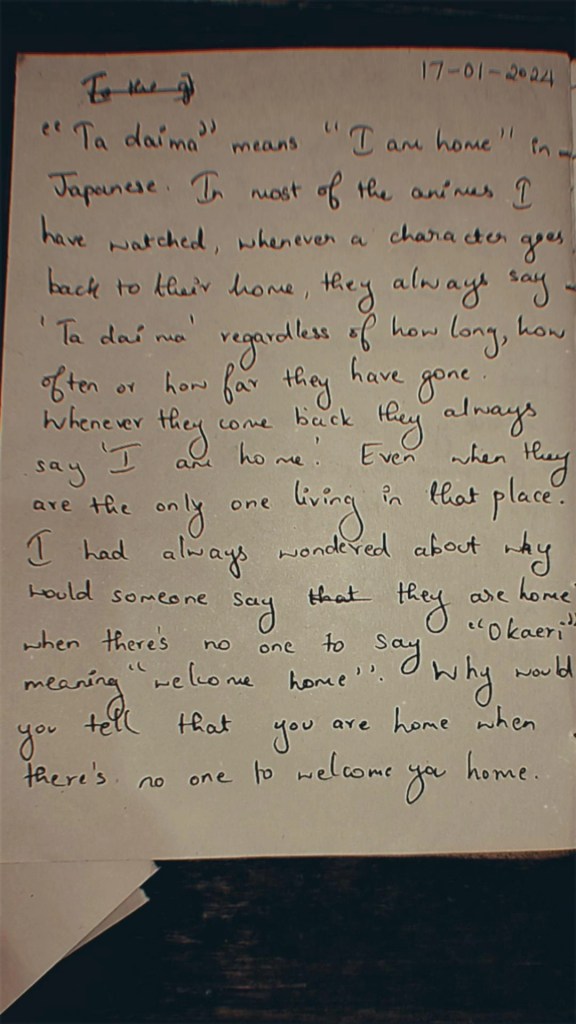 17-01-2024
To the g
"Ta daima" means "I am home" in
Japanese. In most of the animes I
have watched, whenever a character goes
back to their home, they always say
'Ta dai ma' regardless of how long, how
often or how far they have gone.
Whenever they come back they always
say 'I am home'. Even when they
are the only one living in that place.
I had always wondered about why
would someone say that they are home
when there's no one to say "Okaeri"
meaning "welcome home". Why would
you tell that you are home when
there's no one to welcome you home.